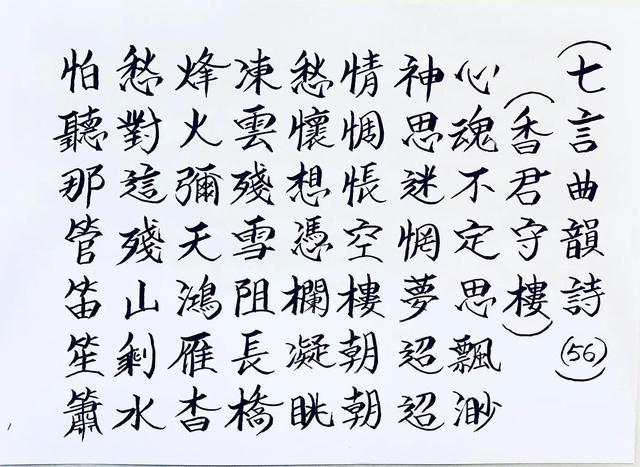 (七言曲韻詩(56))
(香君守樓)
心魂不定思飄渺
神思迷惘夢迢迢
情惆悵空樓朝朝
愁懷想憑欄凝眺
凍雲殘雪阻長橋
烽火彌天鴻雁杳
愁對這殘山剩水
怕聽那管笛笙簫